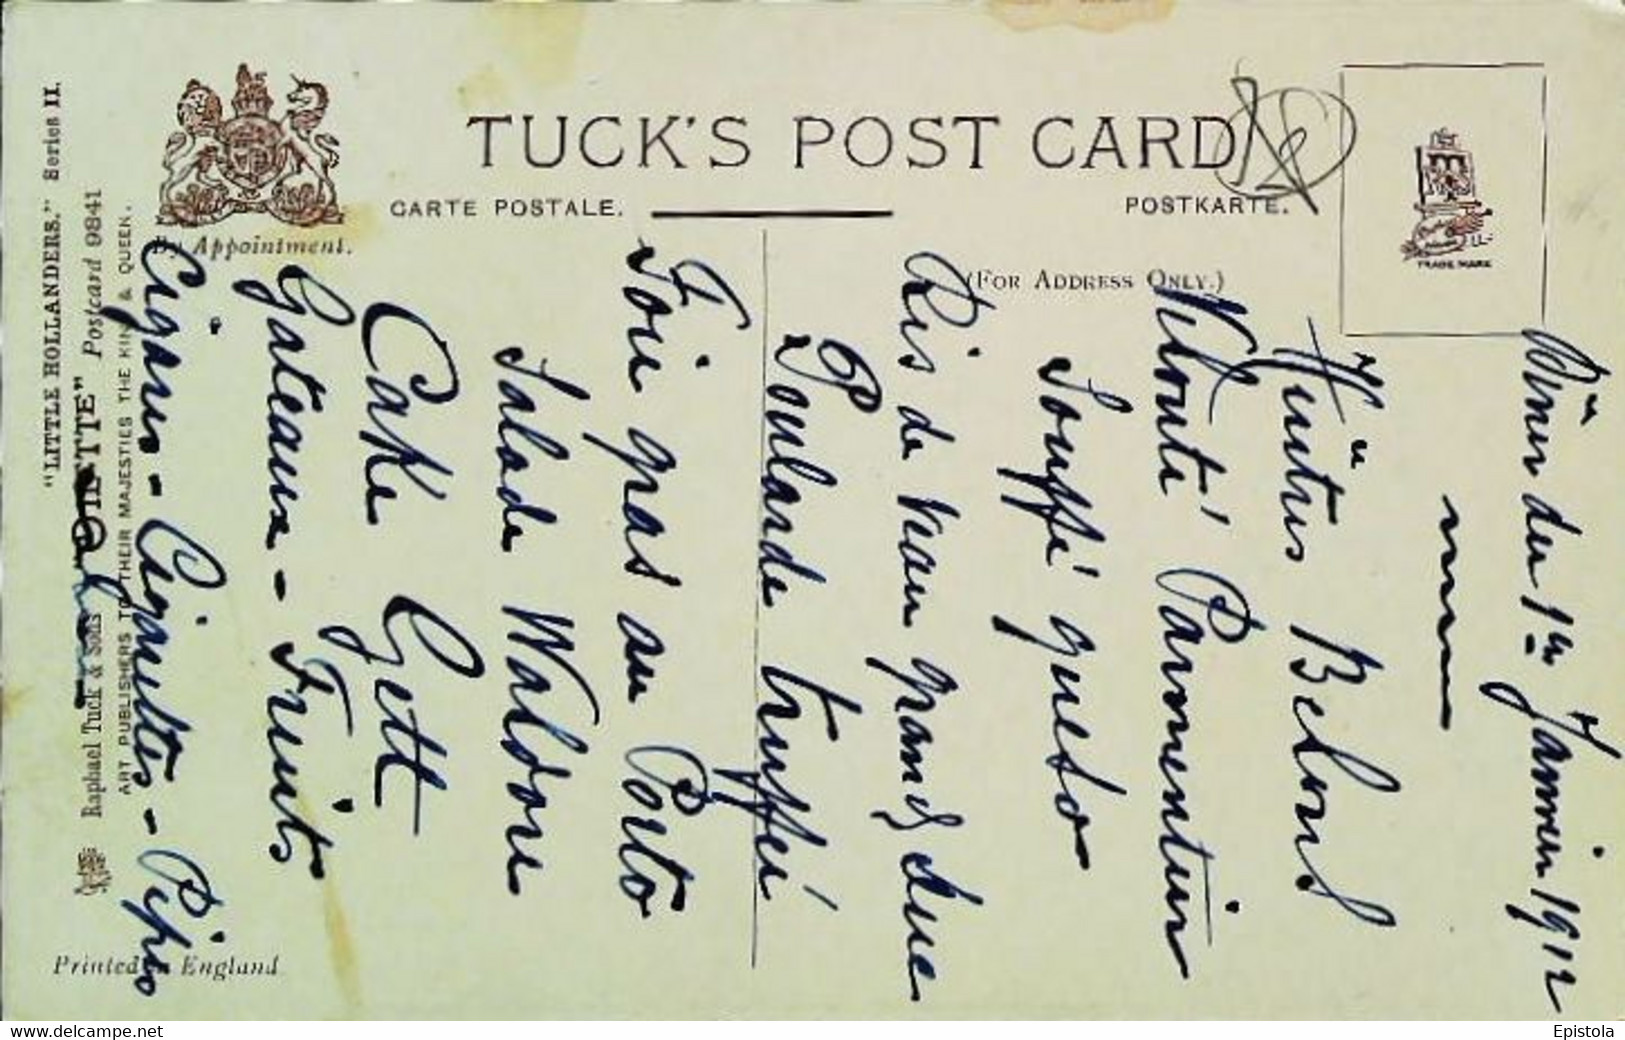 TUCK'S POST CARD
CARTE POSTALE.
POSTKARTE.
(FOR ADDRESS ONLY.)
By Appointment.
TRADE MARK
"LITTLE HOLLANDERS." Series II.
Raphael Tuck & Sons' "OILETTE" Postcard 9841
ART PUBLISHERS TO THEIR MAJESTIES THE KING & QUEEN.
Printed in England
Dîner du 1er Janvier 1912
Huîtres Belons
Velouté Parmentier
Soufflé
Ris de Veau grand Duc
Poularde truffée
Foie gras au Porto
Salade Waldore
Cake Gett
Gateaux - Fruits
Cigares - Cigarettes - Pipes
www.delcampe.net
Epistola